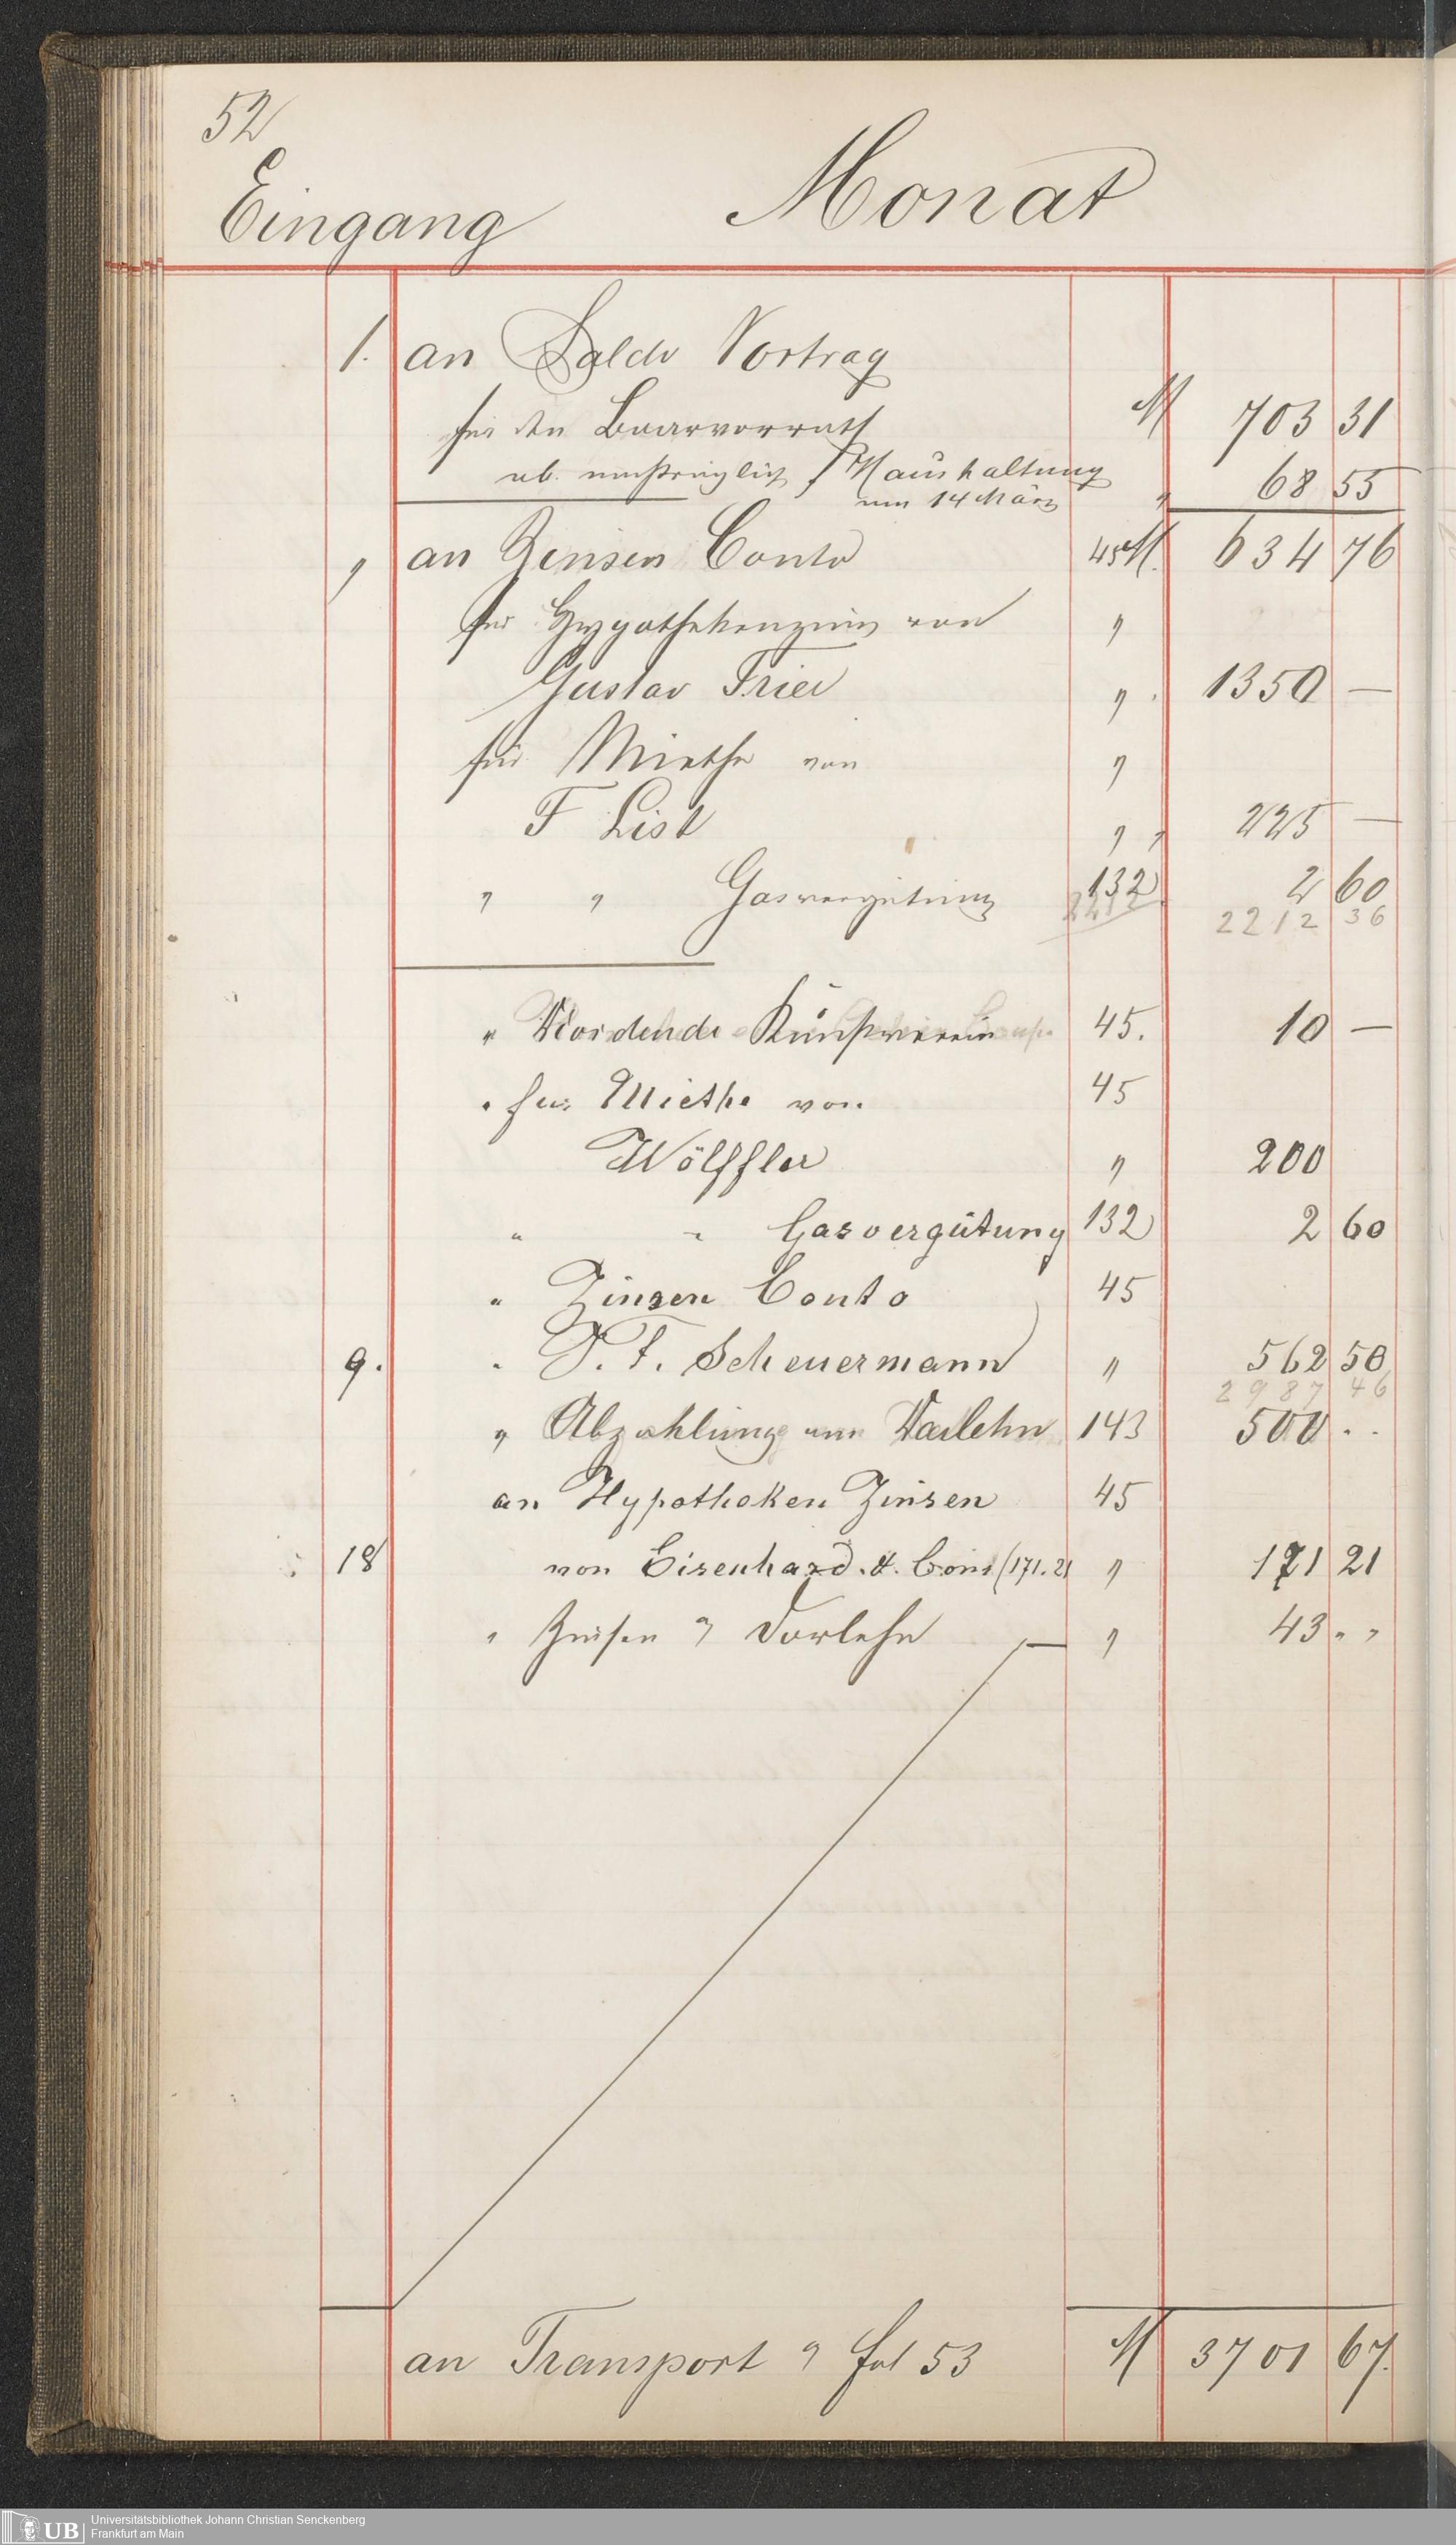 52
Eingang Monat
1. an Saldo Vortrag
für den Baarvorrath M 703 31
ab nachträglich f Haushaltung
am 14 März " 68 55
" an Zinsen Conto 45 M. 634 76
für Hypothekenzins von "
Gustav Trier " 1350 —
für Miethe von "
F List " " 225 —
" " Gasvergütung 132 2 60
2212 2212 36
" Kunstverein 45. 10 —
" für Miethe von 45
Wölffler " 200
" " Gasvergütung 132 2 60
" Zinsen Conto 45
9. " F. Scheuermann " 562 50
2987 46
" Abzahlung am Darlehn 143 500 . .
an Hypotheken Zinsen 45
18 von Eisenhard. & Cons (171.21 " 171 21
" Zinsen " Darlehn — " 43 " "
an Transport " fol 53 M 3701 67.
Universitätsbibliothek Johann Christian Senckenberg
Frankfurt am Main
UB